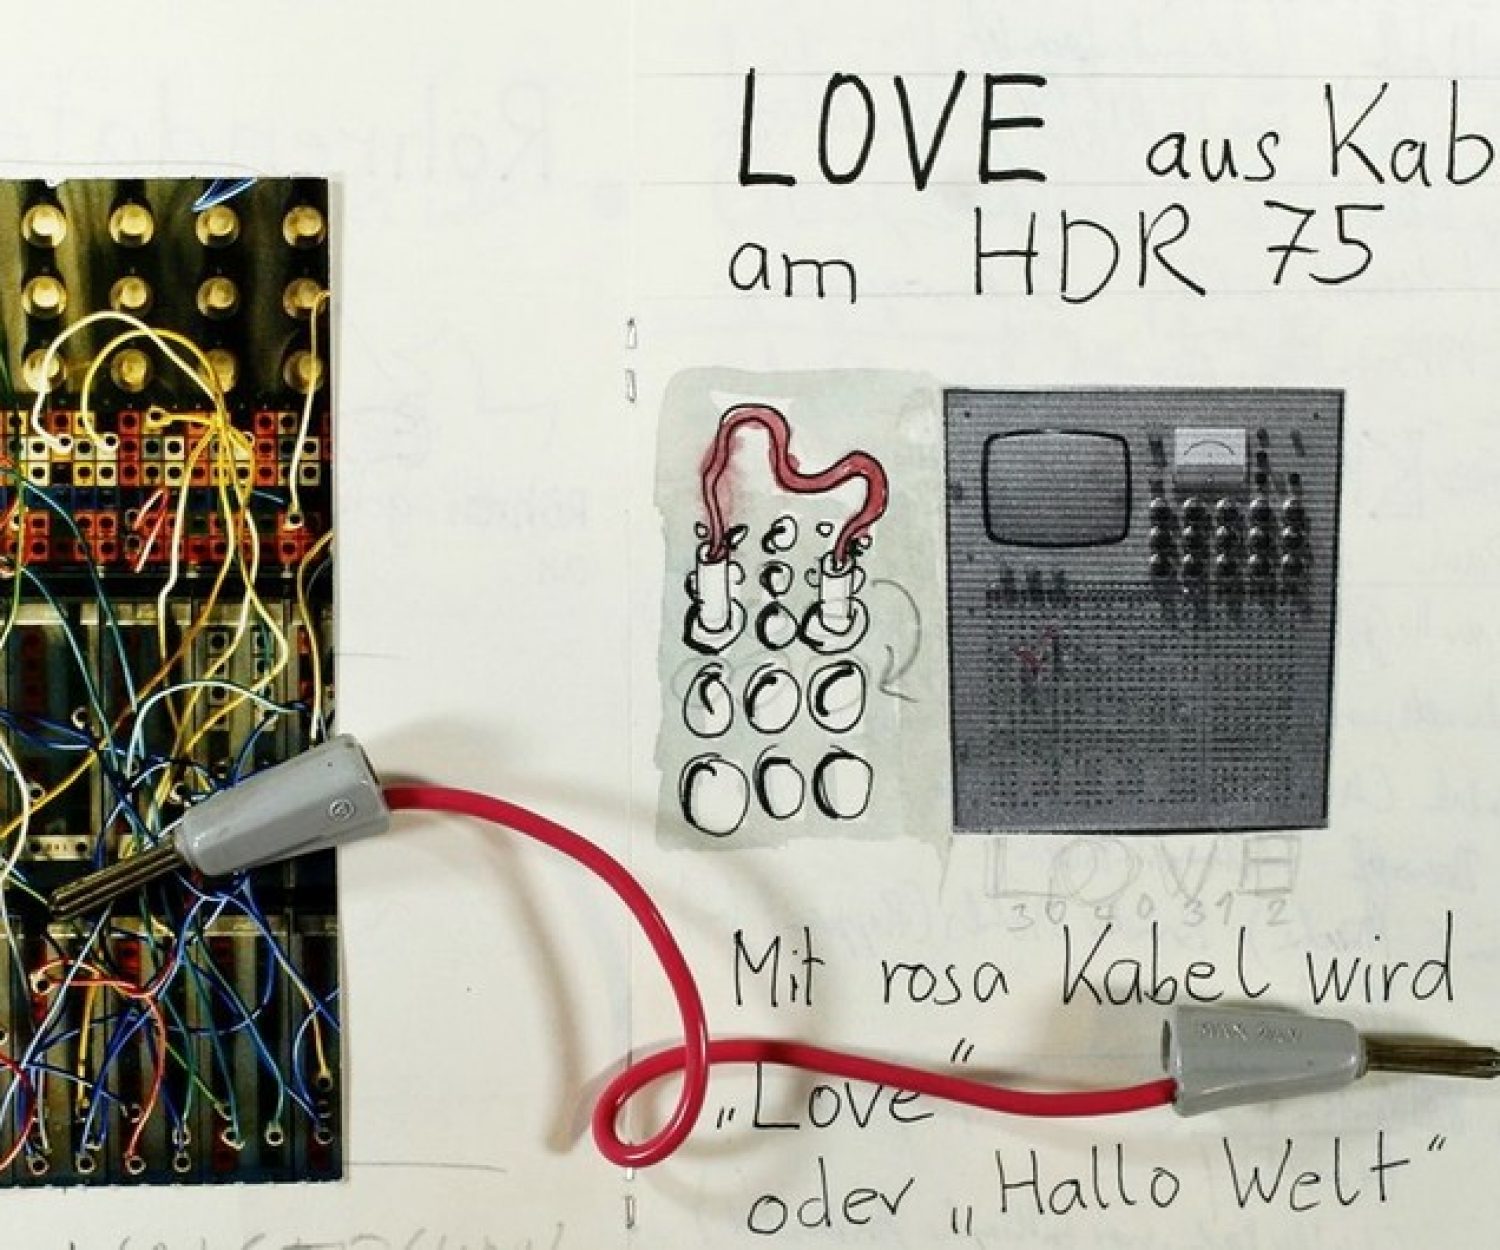 LOVE aus Kab
am HDR 75
LOVE
Mit rosa Kabel wird
„Love“
oder „Hallo Welt“